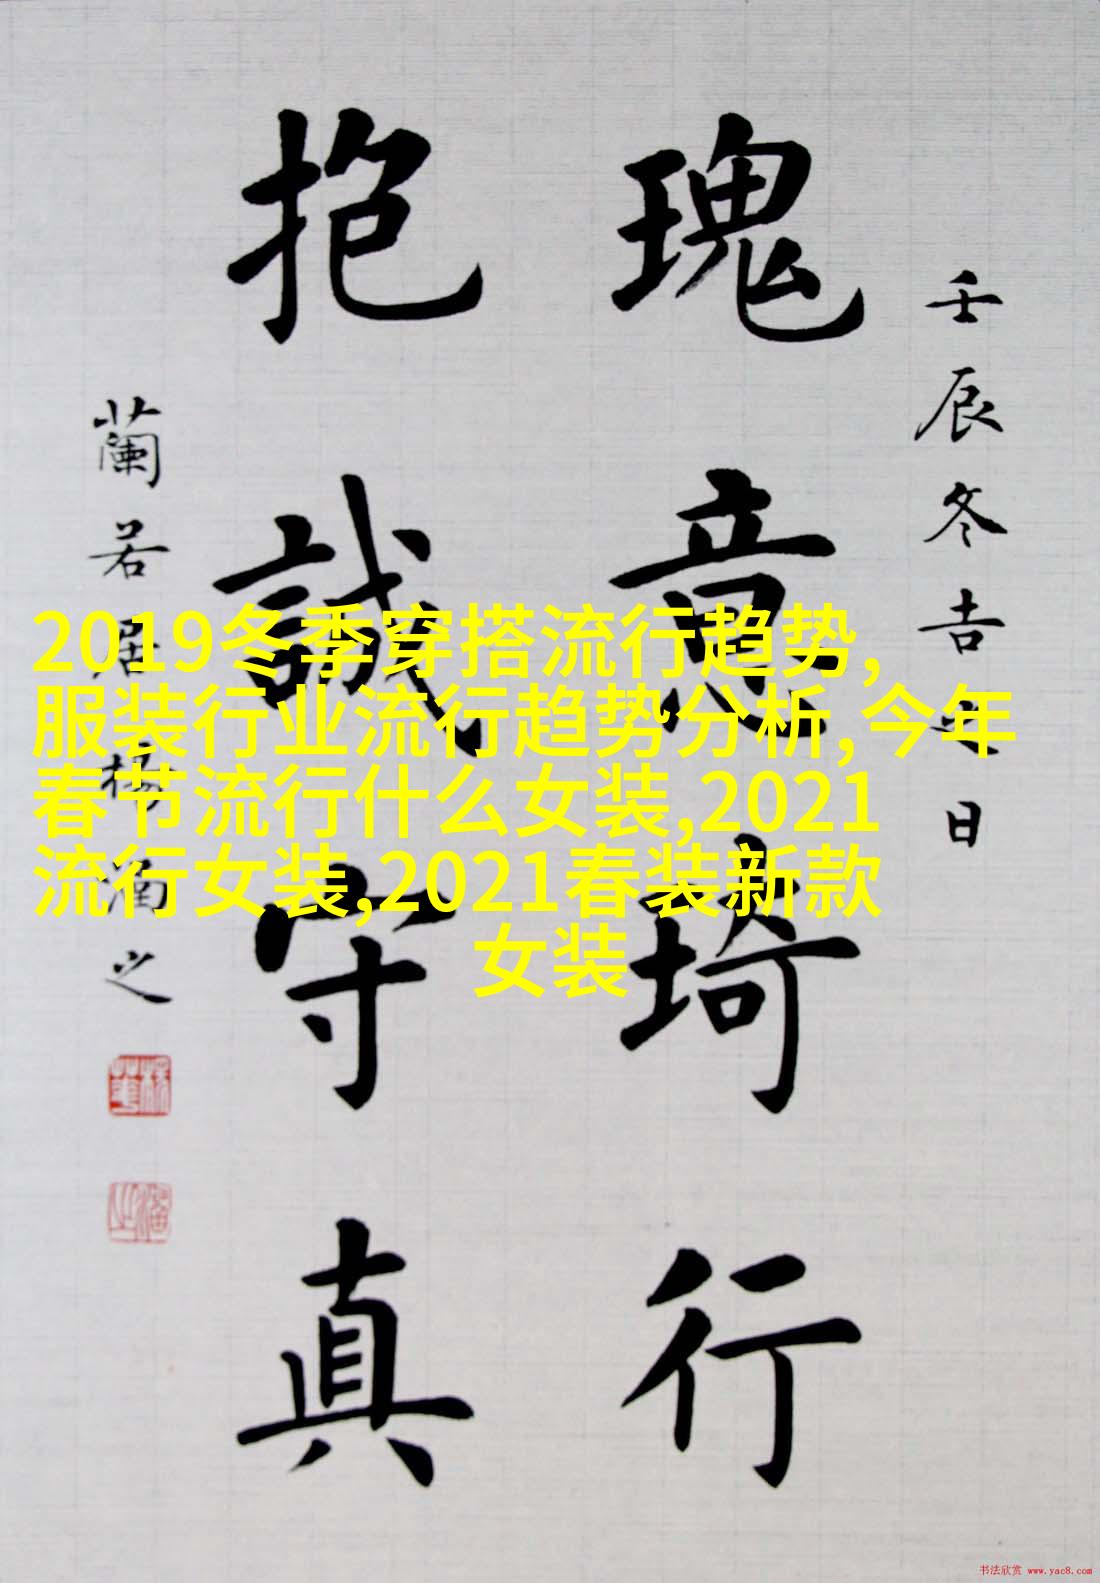 壬辰冬吉日
瑰意琦行
抱誠守真
蘭若居楊之
2019冬季穿搭流行趋势,
服装行业流行趋势分析,今年
春节流行什么女装,2021
流行女装,2021春装新款
女装
书法欣赏 www.yac8.com